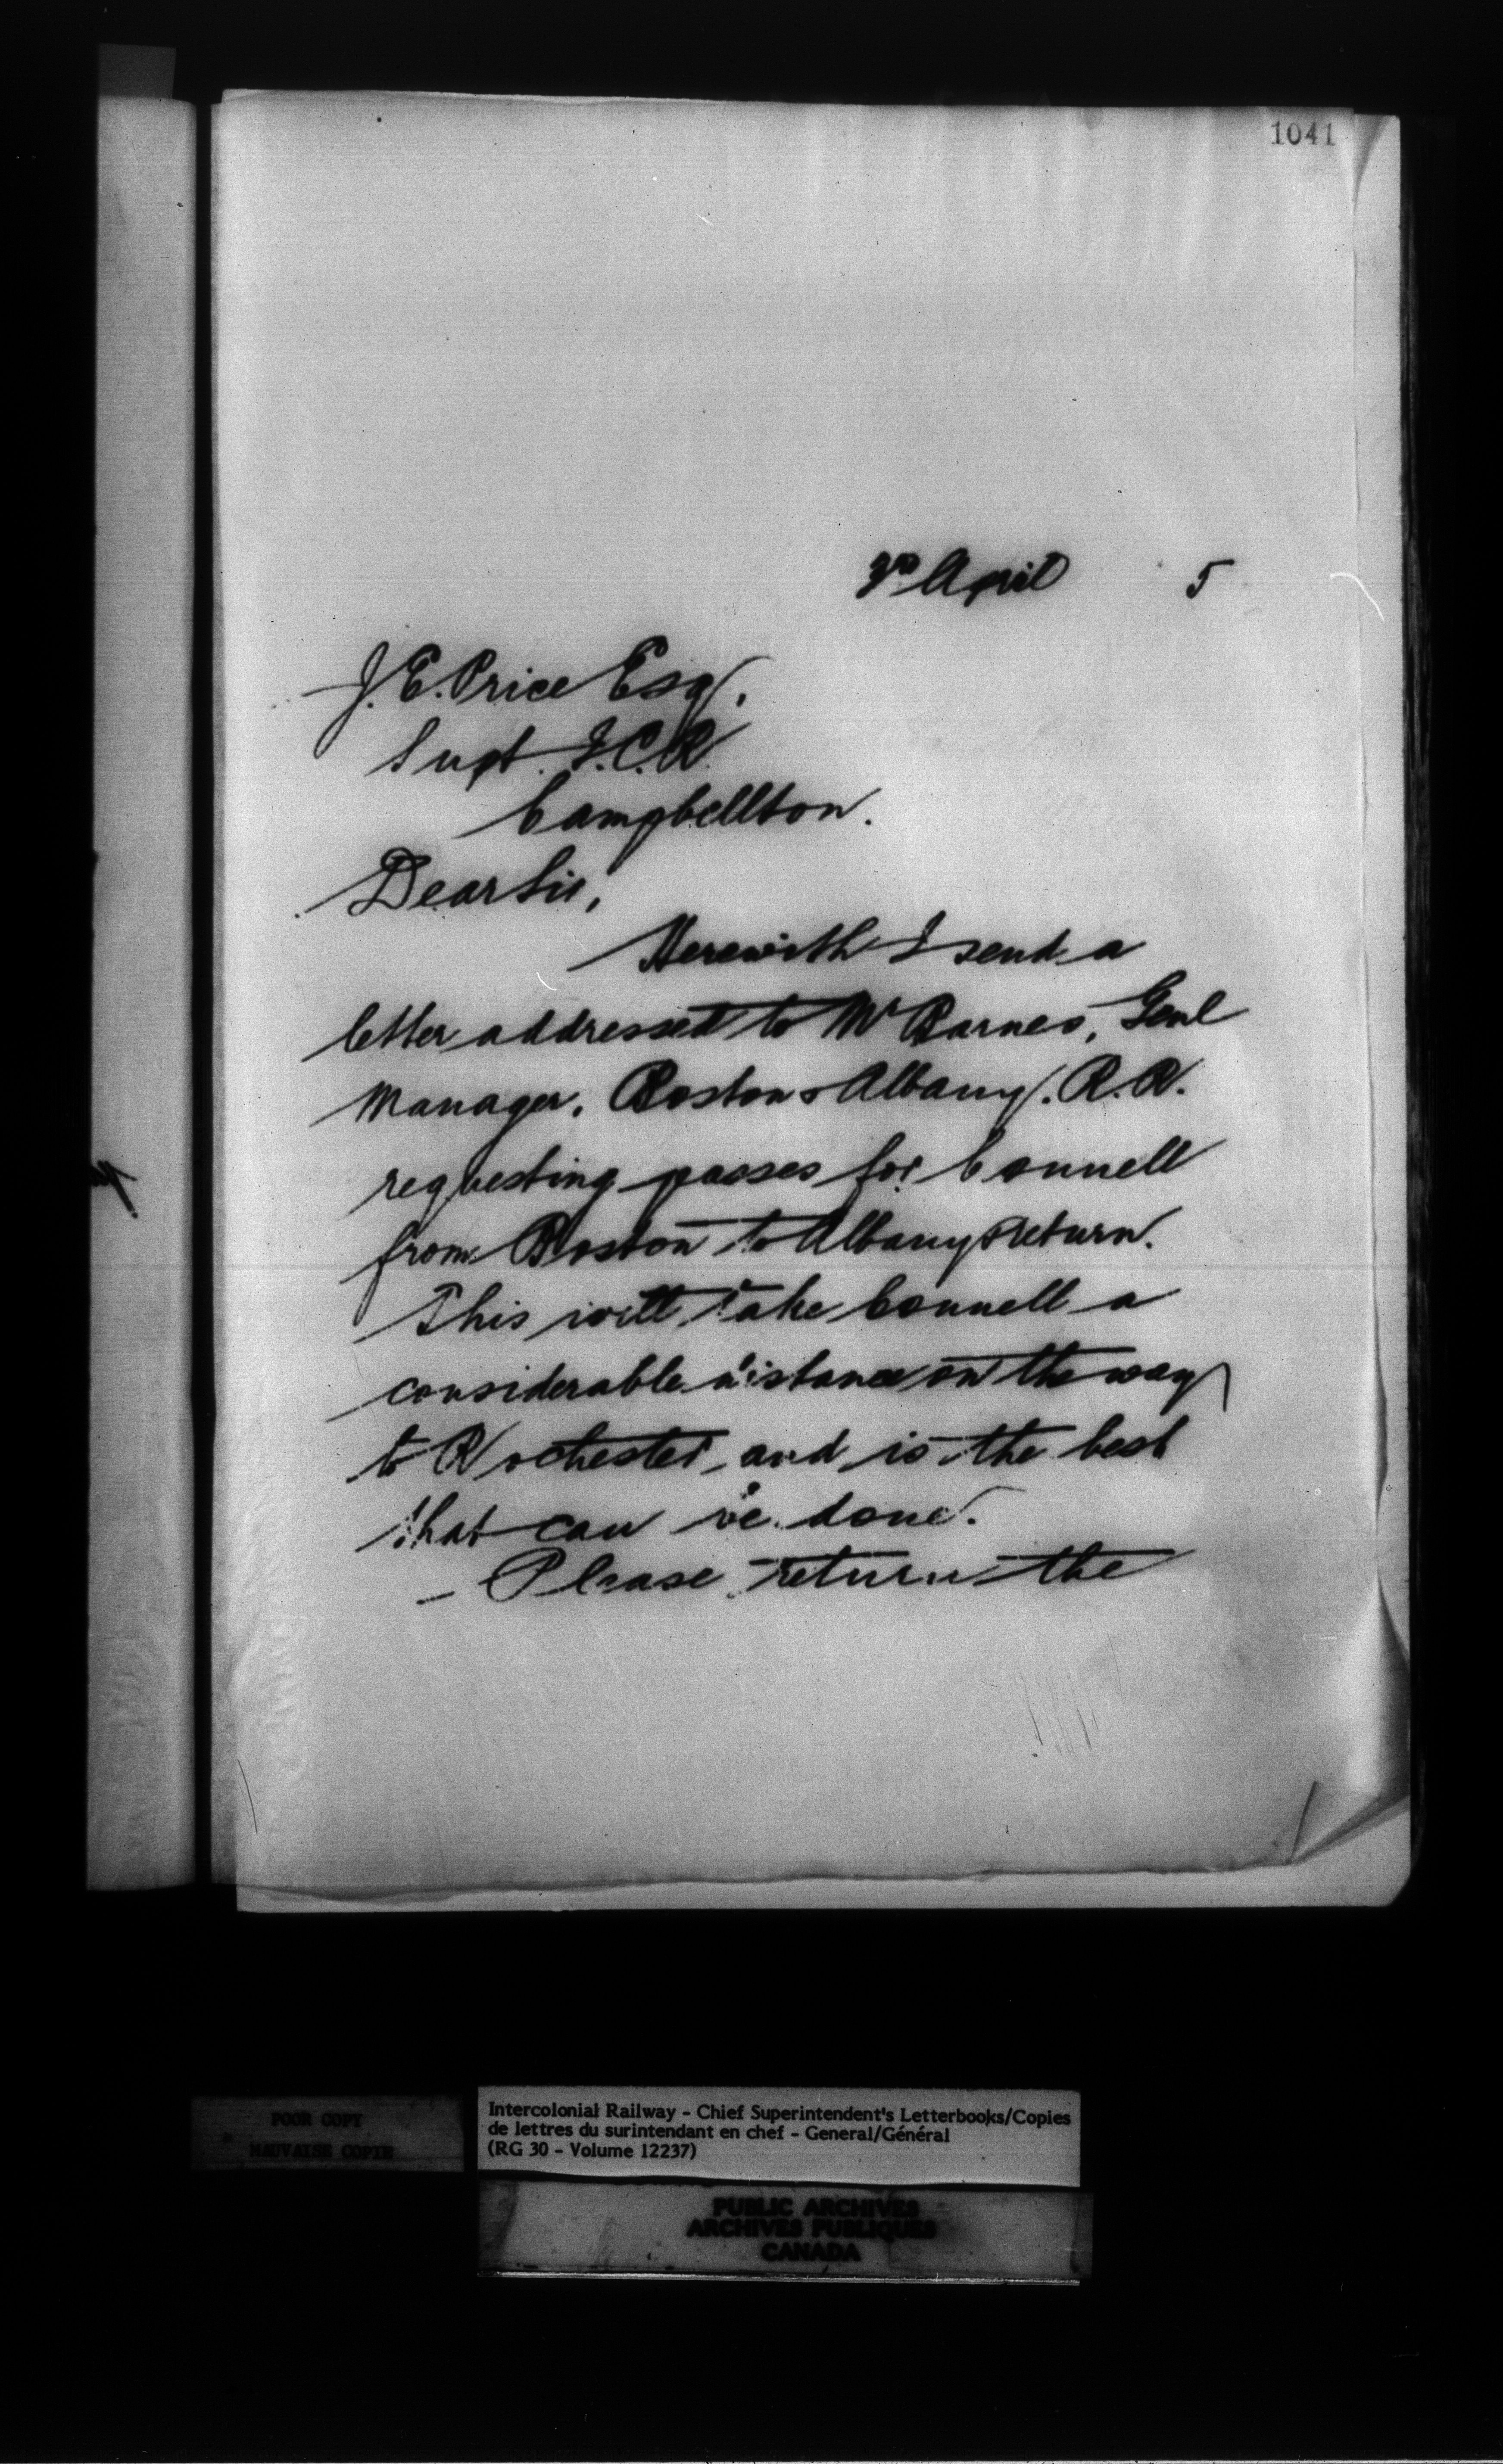 1041
3rd April 5
J. E. Price Esq.
Supt. I.C.R.
Campbellton.
Dear Sir,
Herewith I send a
letter addressed to Mr Barnes, Genl
Manager, Boston & Albany. R.R.
requesting passes for Connell
from Boston to Albany & return.
This will take Connell a
considerable distance on the way
to Rochester, and is the best
that can be done.
Please return the
POOR COPY
MAUVAISE COPIE
Intercolonial Railway - Chief Superintendent's Letterbooks/Copies
de lettres du surintendant en chef - General/Général
(RG 30 - Volume 12237)
PUBLIC ARCHIVES
ARCHIVES PUBLIQUES
CANADA